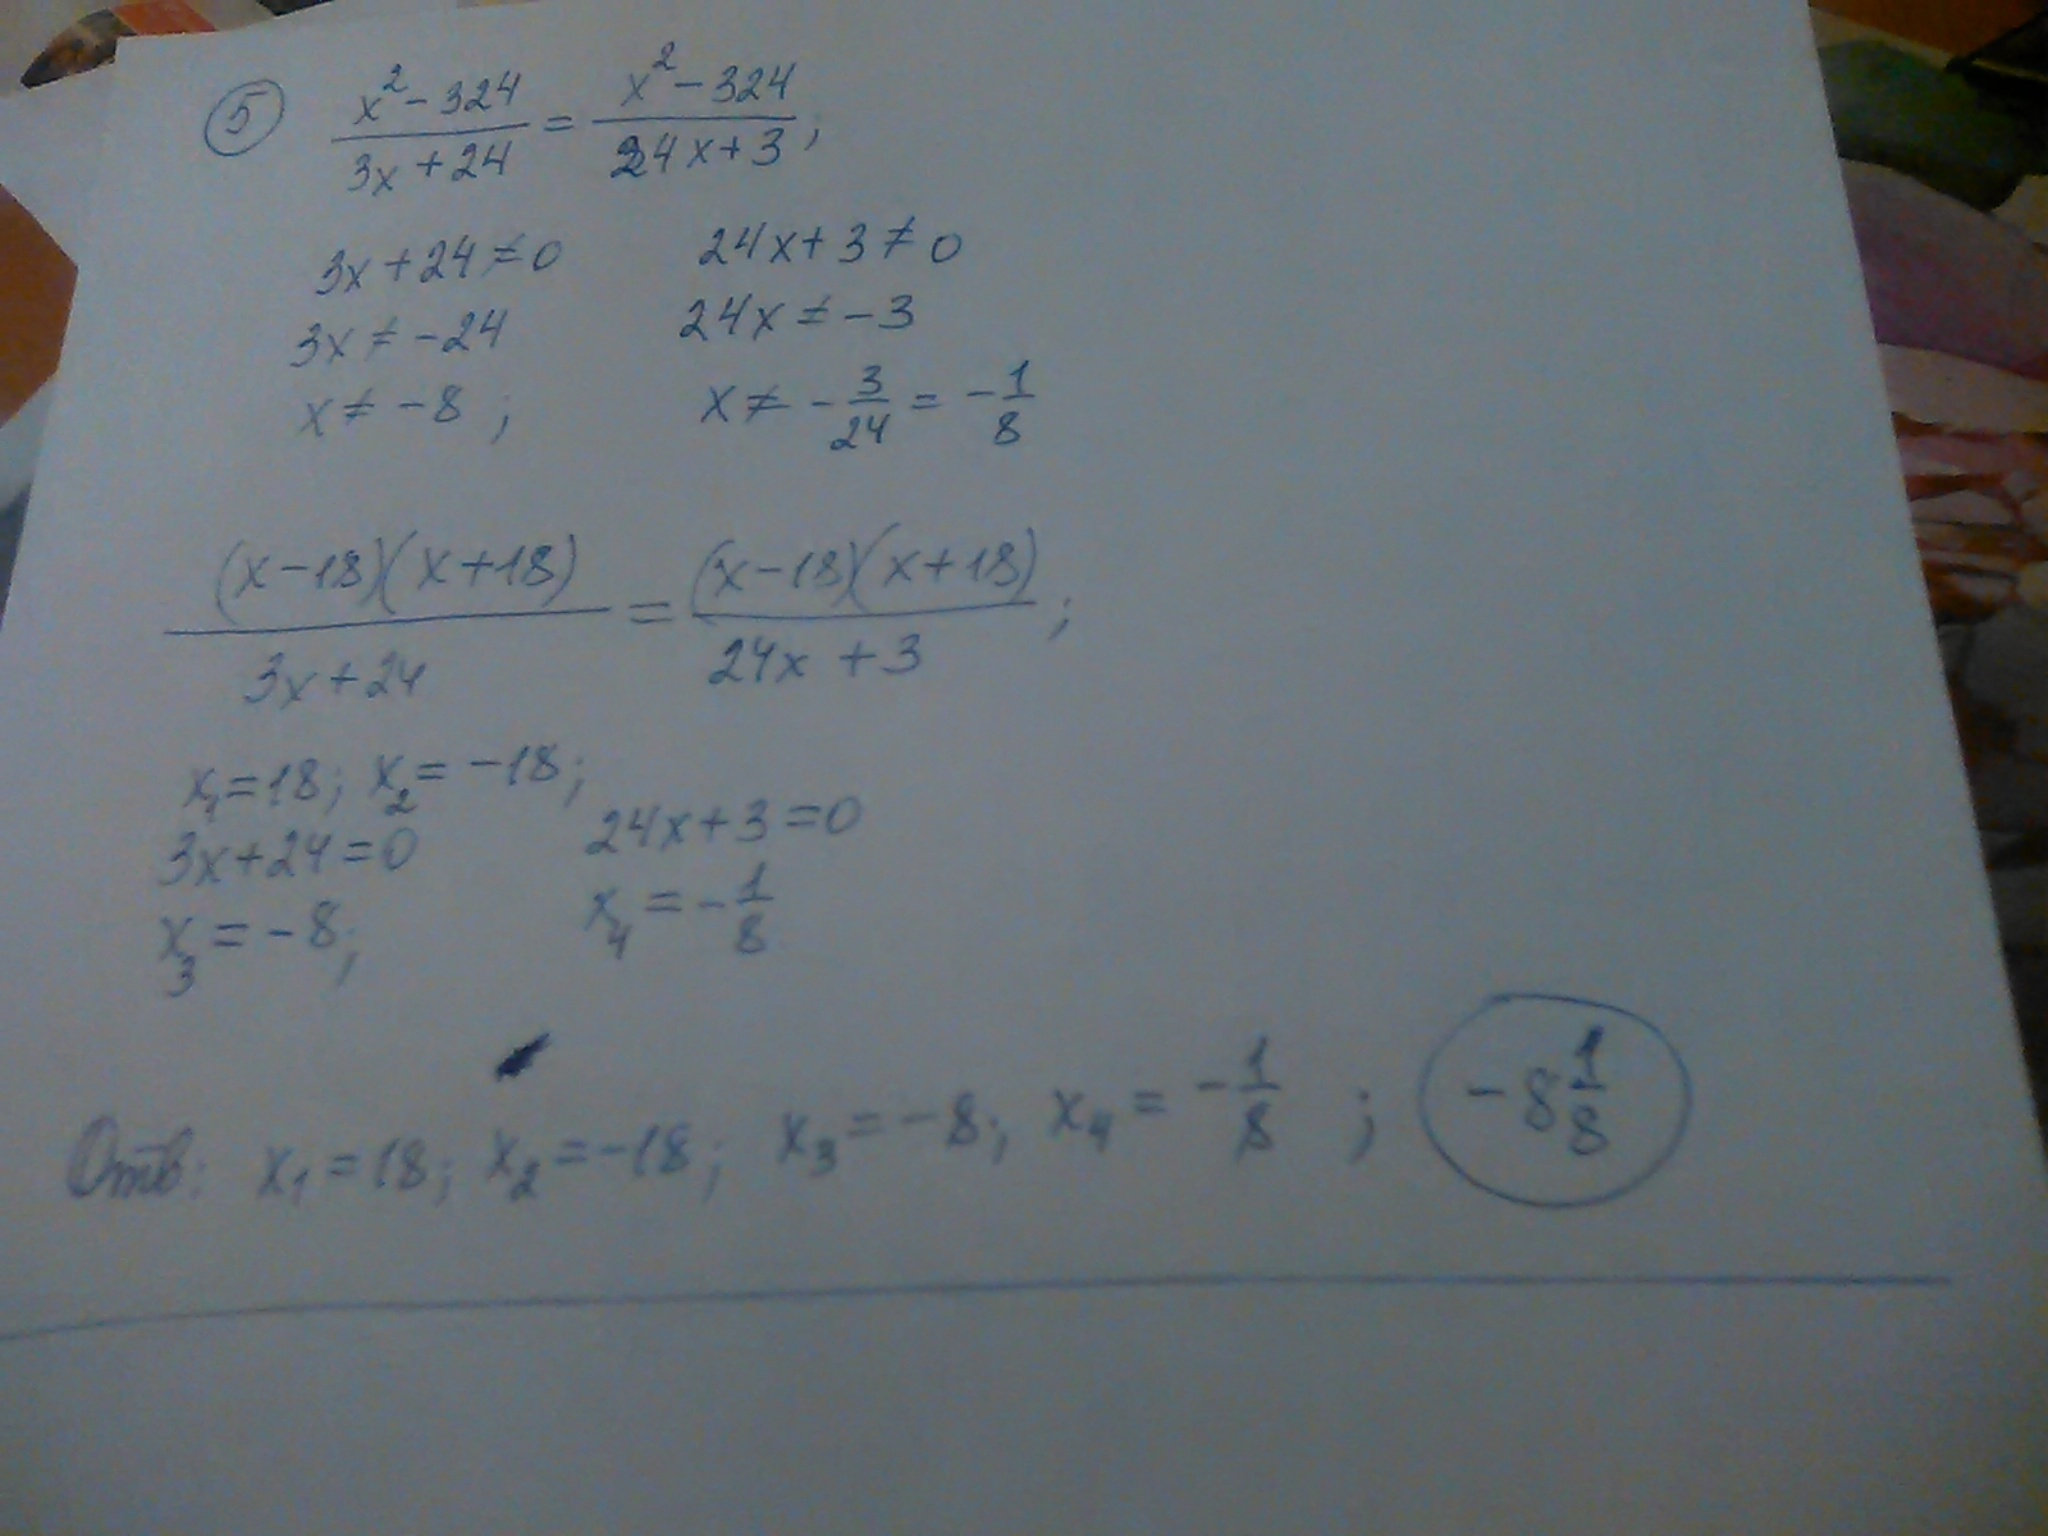 5 x² - 324 / 3x + 24 = x² - 324 / 24x + 3 ;
3x + 24 ≠ 0 24x + 3 ≠ 0
3x ≠ -24 24x ≠ -3
x ≠ -8 ; x ≠ - 3/24 = - 1/8
(x-18)(x+18) / 3x+24 = (x-18)(x+18) / 24x + 3 ;
x₁ = 18; x₂ = -18;
3x+24=0 24x+3=0
x₃ = -8; x₄ = - 1/8
Отв: x₁ = 18; x₂ = -18; x₃ = -8; x₄ = - 1/8 ; -8 1/8